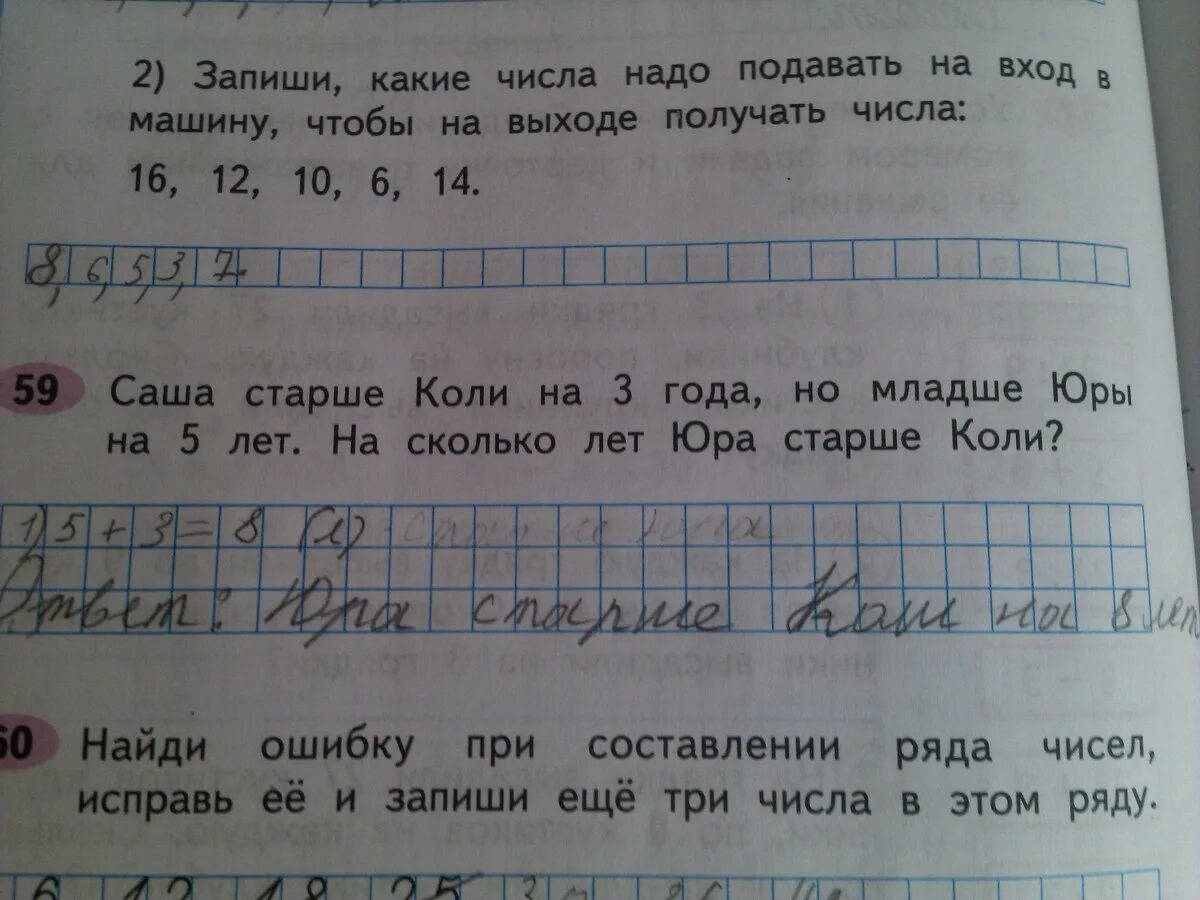 2) Запиши, какие числа надо подавать на вход в
машину, чтобы на выходе получать числа:
16, 12, 10, 6, 14.
8, 6, 5, 3, 7.
59 Саша старше Коли на 3 года, но младше Юры
на 5 лет. На сколько лет Юра старше Коли?
1) 5 + 3 = 8 (л)
Ответ: Юра старше Коли на 8 лет
60 Найди ошибку при составлении ряда чисел,
исправь её и запиши ещё три числа в этом ряду.
6 12 18 25